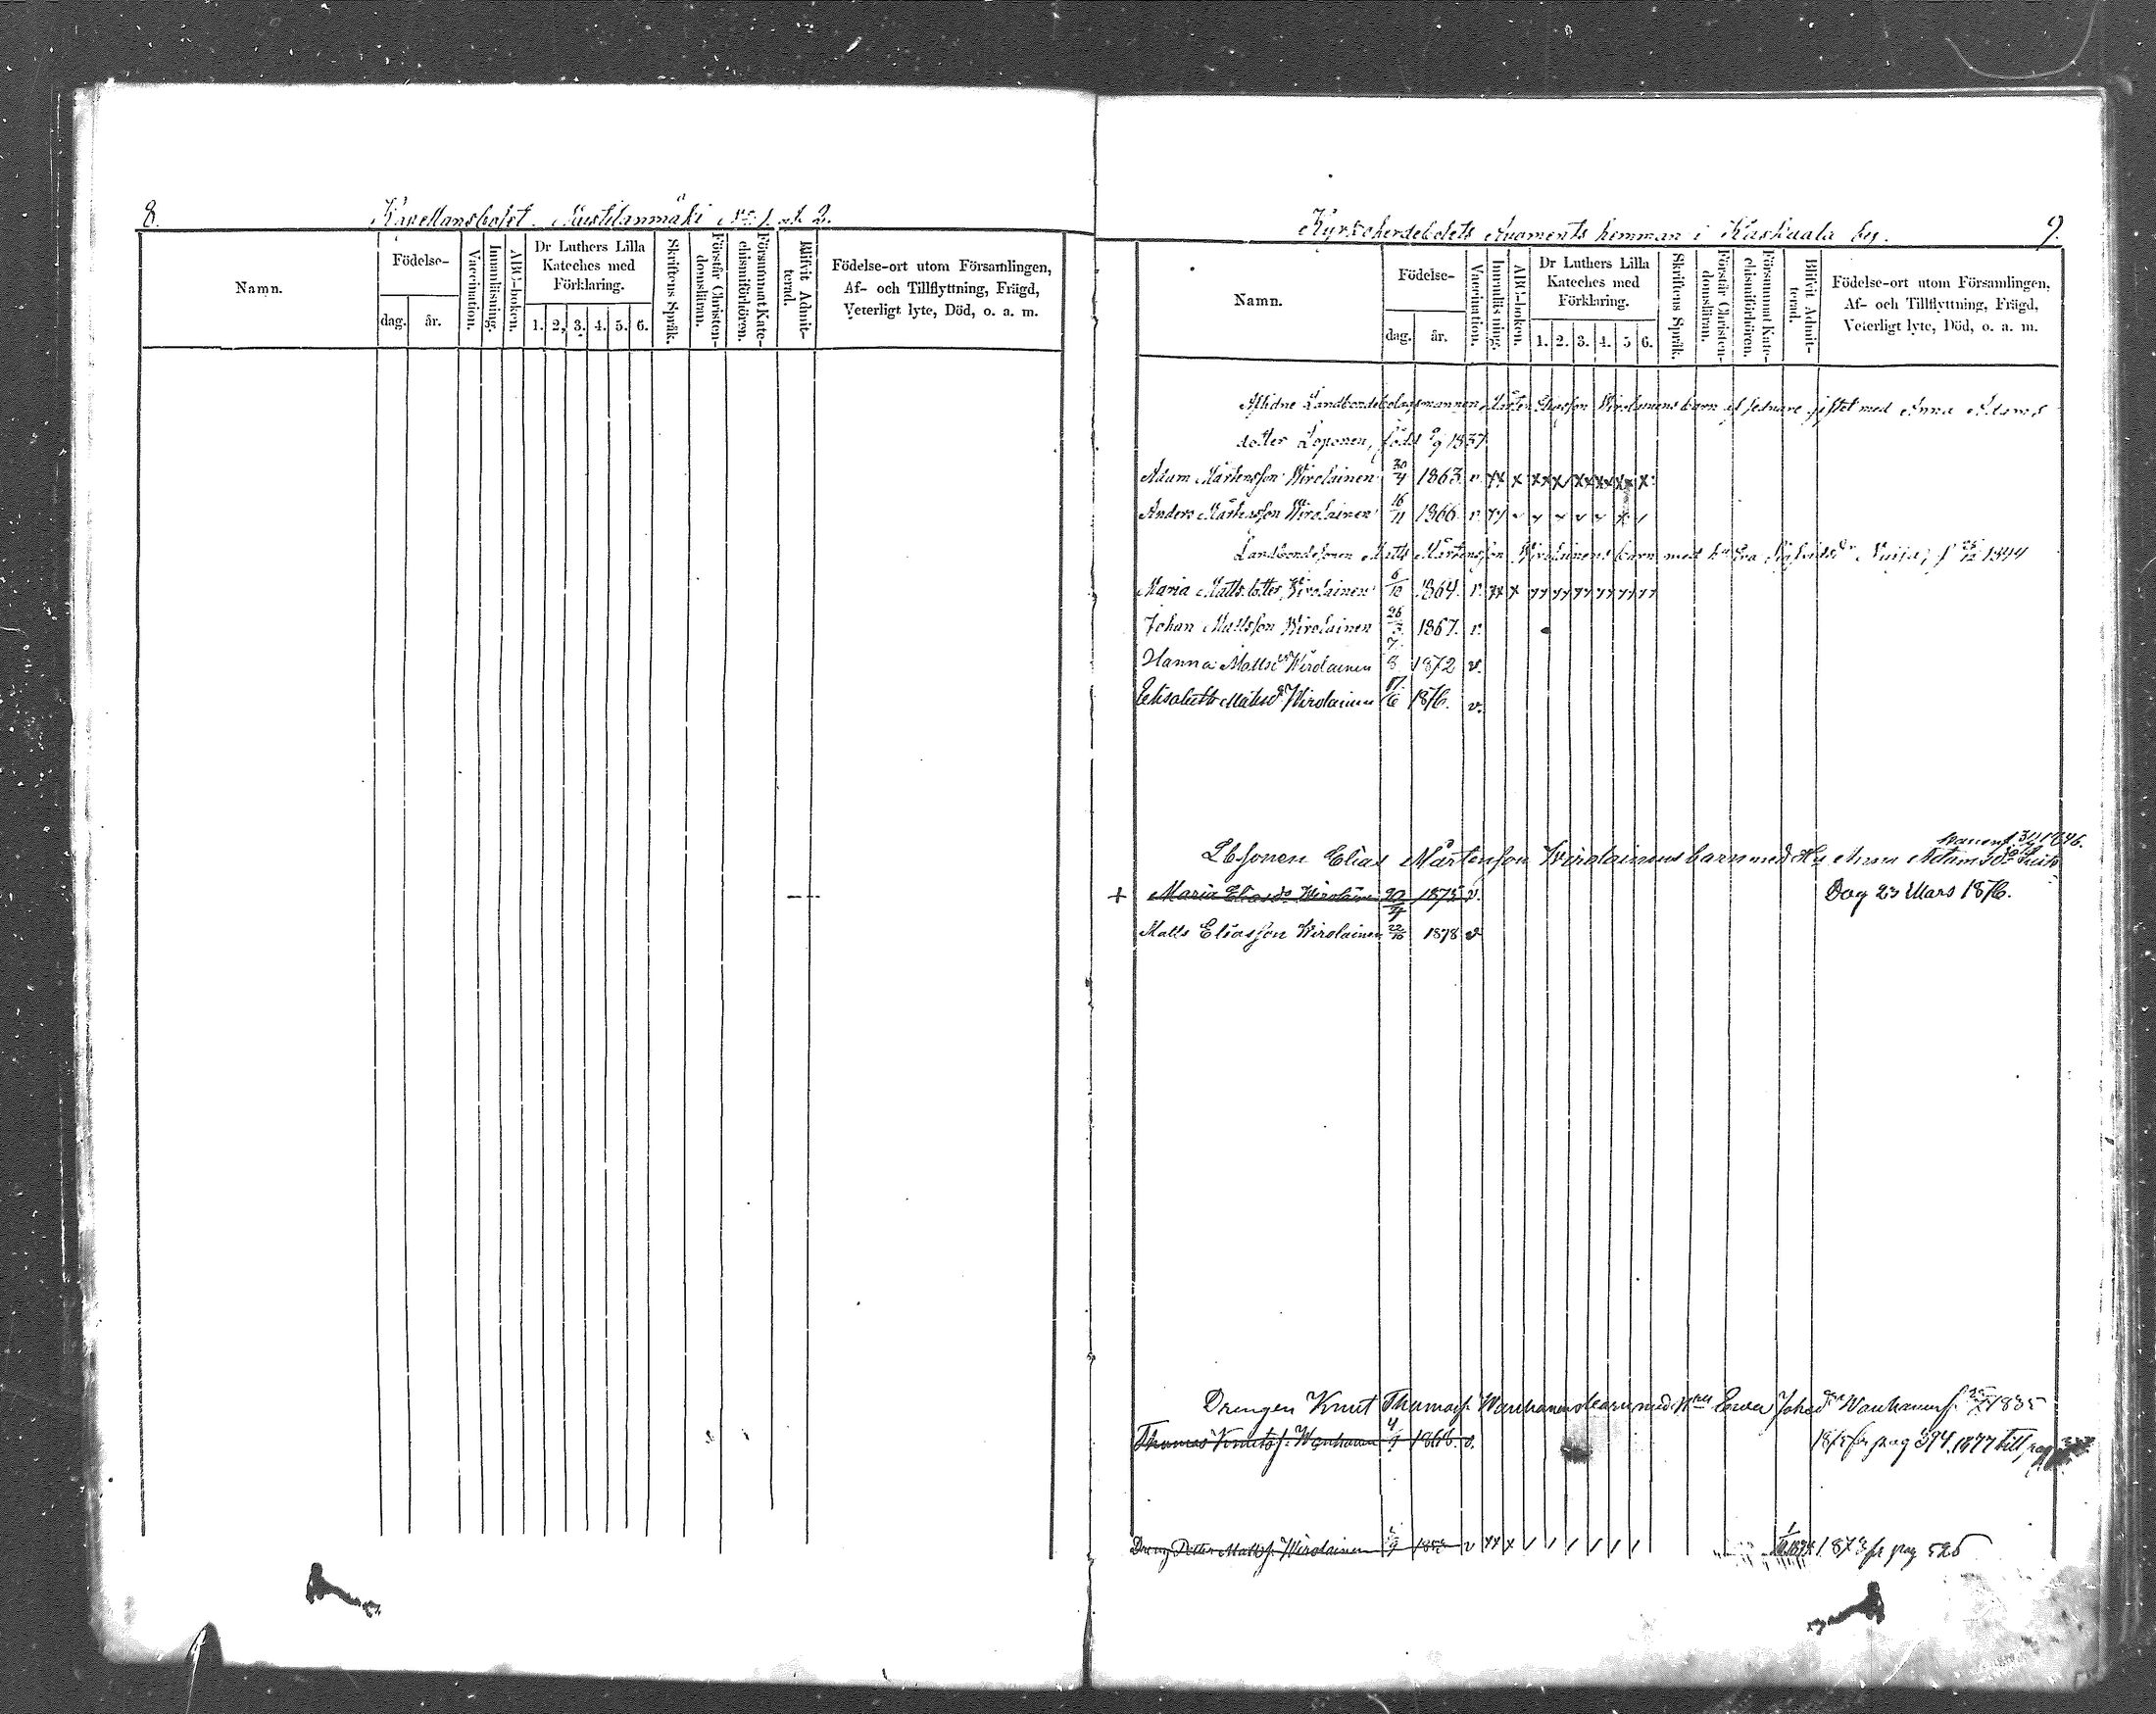 8.
Kapellansbolet. Nustilanmäki No 1 och 2.
Namn.
Födelse-
dag.
år.
Vaccination.
Innanläsning.
ABC-boken.
Dr Luthers Lilla
Kateches med
Förklaring.
1. 2. 3. 4. 5. 6.
Skriftens Språk.
Förstår Christen-
domsläran.
Försummat Kate-
chismiförhören.
Blifvit Admit-
terad.
Födelse-ort utom Församlingen,
Af- och Tillflyttning, Frägd,
Veterligt lyte, Död, o. a. m.
Kyrkoherdebolets hemman i Kaskaala by.
9.
Namn.
Födelse-
dag.
år.
Vaccination.
Innanläsning.
ABC-boken.
Dr Luthers Lilla
Kateches med
Förklaring.
1. 2. 3. 4. 5 6.
Skriftens Språk.
Förstår Christen-
domsläran.
Försummat Kate-
chismiförhören.
Blifvit Admit-
terad.
Födelse-ort utom Församlingen,
Af- och Tillflyttning, Frägd,
Veterligt lyte, Död, o. a. m.
Aflidne Landbondebolagsmannen, Mårten Eliasson Wirolainens barn af sednare giftet med Anna Adams
dotter Loponen, född 9 1837
Adam Mårtensson Wirolainen 30/4 1863. v. xx x xx x xx xx xx x
Anders Mårtensson Wirolainen 16/11 1866. v.
Landbondesonen Matts Mårtensson Wirolainens barn med Hu Eva 1844
Maria Mattsdotter Wirolainen 6/10 1864. v. xx x
Johan Mattsson Wirolainen 26/3 1867. v.
Hanna Mattsdr Wirolainen 7/8 1872 v.
Elisabeth Matsdr Wirolainen 17/6 1876. v.
Lbsonen Elias Mårtenson Wirolainens barn med Hu Anna Adamsdr
+ Maria Eliasdr Wirolainen 20/4 1875 v. Dog 23 Mars 1876.
Matts Eliasson Wirolainen 22/10 1878 v
Drengen Knut Thomass. Wanhanens barn med Hu Ewa Johsdr Wanhanen f. 1835
Thomas Knutss. Wanhanen 4/9 1866. v. fr pag 394. 1877 till pag
Dreng Petter Matts. Wirolainen v xx x / / / / / / 1873 fr pag 526